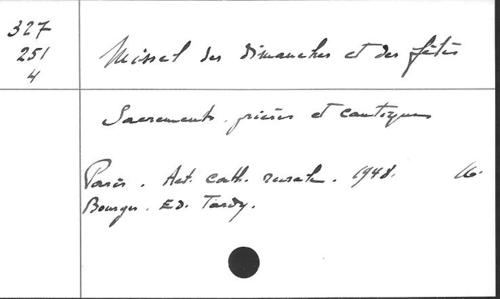 327
251
4
Missel des dimanches et des fêtes
Sacrements, prières et cantiques
Paris. Act. cath. rurale. 1948. 16.
Bourges. Ed. Tardy.